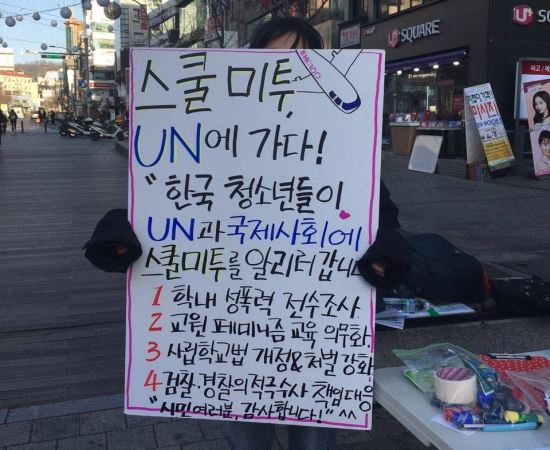 스쿨 미투,
UN에 가다!
"한국 청소년들이
UN과 국제사회에
스쿨미투를 알리러 갑니다
1 학내 성폭력 전수조사
2 교원 페미니즘 교육 의무화
3 사립학교법 개정&처벌 강화
4 검찰·경찰의 적극수사 책임대응
"시민여러분, 감사합니다!" ^^
U+ SQUARE
U+
마사지